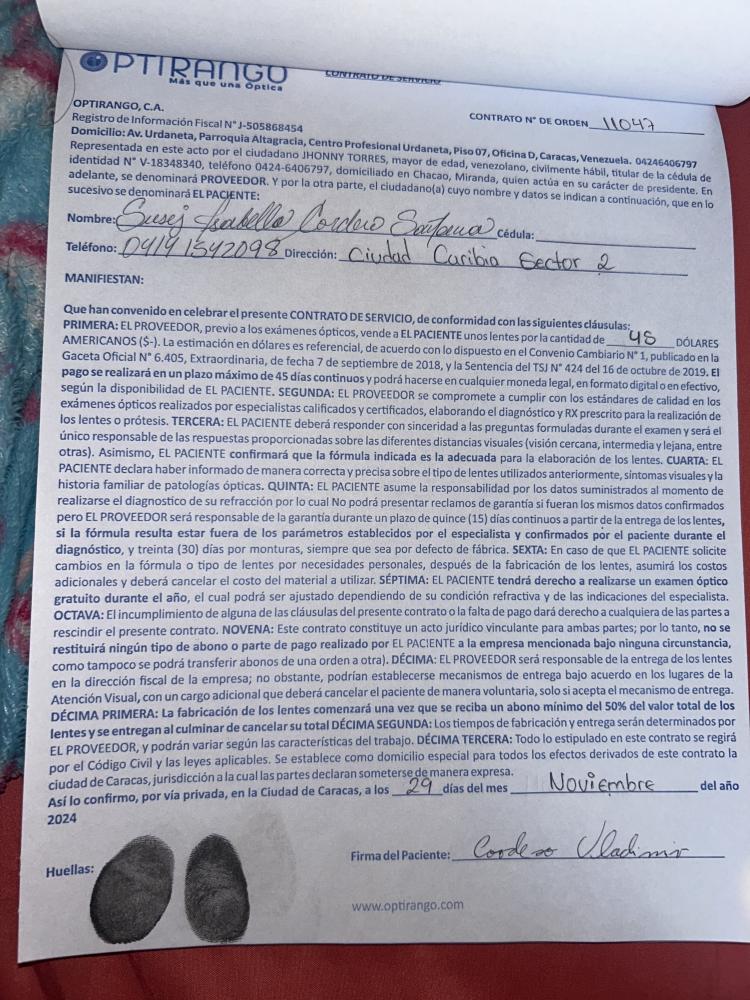 OPTIRANGO
Más que una Óptica
CONTRATO DE SERVICIO
OPTIRANGO, C.A.
CONTRATO N° DE ORDEN 11047
Registro de Información Fiscal N° J-505868454
Domicilio: Av. Urdaneta, Parroquia Altagracia, Centro Profesional Urdaneta, Piso 07, Oficina D, Caracas, Venezuela. 04246406797
Representada en este acto por el ciudadano JHONNY TORRES, mayor de edad, venezolano, civilmente hábil, titular de la cédula de
identidad N° V-18348340, teléfono 0424-6406797, domiciliado en Chacao, Miranda, quien actúa en su carácter de presidente. En
adelante, se denominará PROVEEDOR. Y por la otra parte, el ciudadano(a) cuyo nombre y datos se indican a continuación, que en lo
sucesivo se denominará EL PACIENTE:
Nombre: Susej Isabella Cordero Cédula:
Teléfono: 04141542098 Dirección: Ciudad Caribia Sector 2
MANIFIESTAN:
Que han convenido en celebrar el presente CONTRATO DE SERVICIO, de conformidad con las siguientes cláusulas:
PRIMERA: EL PROVEEDOR, previo a los exámenes ópticos, vende a EL PACIENTE unos lentes por la cantidad de 45 DÓLARES
AMERICANOS ($-). La estimación en dólares es referencial, de acuerdo con lo dispuesto en el Convenio Cambiario N° 1, publicado en la
Gaceta Oficial N° 6.405, Extraordinaria, de fecha 7 de septiembre de 2018, y la Sentencia del TSJ N° 424 del 16 de octubre de 2019. El
pago se realizará en un plazo máximo de 45 días continuos y podrá hacerse en cualquier moneda legal, en formato digital o en efectivo,
según la disponibilidad de EL PACIENTE. SEGUNDA: EL PROVEEDOR se compromete a cumplir con los estándares de calidad en los
exámenes ópticos realizados por especialistas calificados y certificados, elaborando el diagnóstico y RX prescrito para la realización de
los lentes o prótesis. TERCERA: EL PACIENTE deberá responder con sinceridad a las preguntas formuladas durante el examen y será el
único responsable de las respuestas proporcionadas sobre las diferentes distancias visuales (visión cercana, intermedia y lejana, entre
otras). Asimismo, EL PACIENTE confirmará que la fórmula indicada es la adecuada para la elaboración de los lentes. CUARTA: EL
PACIENTE declara haber informado de manera correcta y precisa sobre el tipo de lentes utilizados anteriormente, síntomas visuales y la
historia familiar de patologías ópticas. QUINTA: EL PACIENTE asume la responsabilidad por los datos suministrados al momento de
realizarse el diagnostico de su refracción por lo cual No podrá presentar reclamos de garantía si fueran los mismos datos confirmados
pero EL PROVEEDOR será responsable de la garantía durante un plazo de quince (15) días continuos a partir de la entrega de los lentes,
si la fórmula resulta estar fuera de los parámetros establecidos por el especialista y confirmados por el paciente durante el
diagnóstico, y treinta (30) días por monturas, siempre que sea por defecto de fábrica. SEXTA: En caso de que EL PACIENTE solicite
cambios en la fórmula o tipo de lentes por necesidades personales, después de la fabricación de los lentes, asumirá los costos
adicionales y deberá cancelar el costo del material a utilizar. SÉPTIMA: EL PACIENTE tendrá derecho a realizarse un examen óptico
gratuito durante el año, el cual podrá ser ajustado dependiendo de su condición refractiva y de las indicaciones del especialista.
OCTAVA: El incumplimiento de alguna de las cláusulas del presente contrato o la falta de pago dará derecho a cualquiera de las partes a
rescindir el presente contrato. NOVENA: Este contrato constituye un acto jurídico vinculante para ambas partes; por lo tanto, no se
restituirá ningún tipo de abono o parte de pago realizado por EL PACIENTE a la empresa mencionada bajo ninguna circunstancia,
como tampoco se podrá transferir abonos de una orden a otra). DÉCIMA: EL PROVEEDOR será responsable de la entrega de los lentes
en la dirección fiscal de la empresa; no obstante, podrían establecerse mecanismos de entrega bajo acuerdo en los lugares de la
Atención Visual, con un cargo adicional que deberá cancelar el paciente de manera voluntaria, solo si acepta el mecanismo de entrega.
DÉCIMA PRIMERA: La fabricación de los lentes comenzará una vez que se reciba un abono mínimo del 50% del valor total de los
lentes y se entregan al culminar de cancelar su total DÉCIMA SEGUNDA: Los tiempos de fabricación y entrega serán determinados por
EL PROVEEDOR, y podrán variar según las características del trabajo. DÉCIMA TERCERA: Todo lo estipulado en este contrato se regirá
por el Código Civil y las leyes aplicables. Se establece como domicilio especial para todos los efectos derivados de este contrato la
ciudad de Caracas, jurisdicción a la cual las partes declaran someterse de manera expresa.
Así lo confirmo, por vía privada, en la Ciudad de Caracas, a los 29 días del mes Noviembre del año
2024
Huellas:
Firma del Paciente: Cordero Vladimir
www.optirango.com